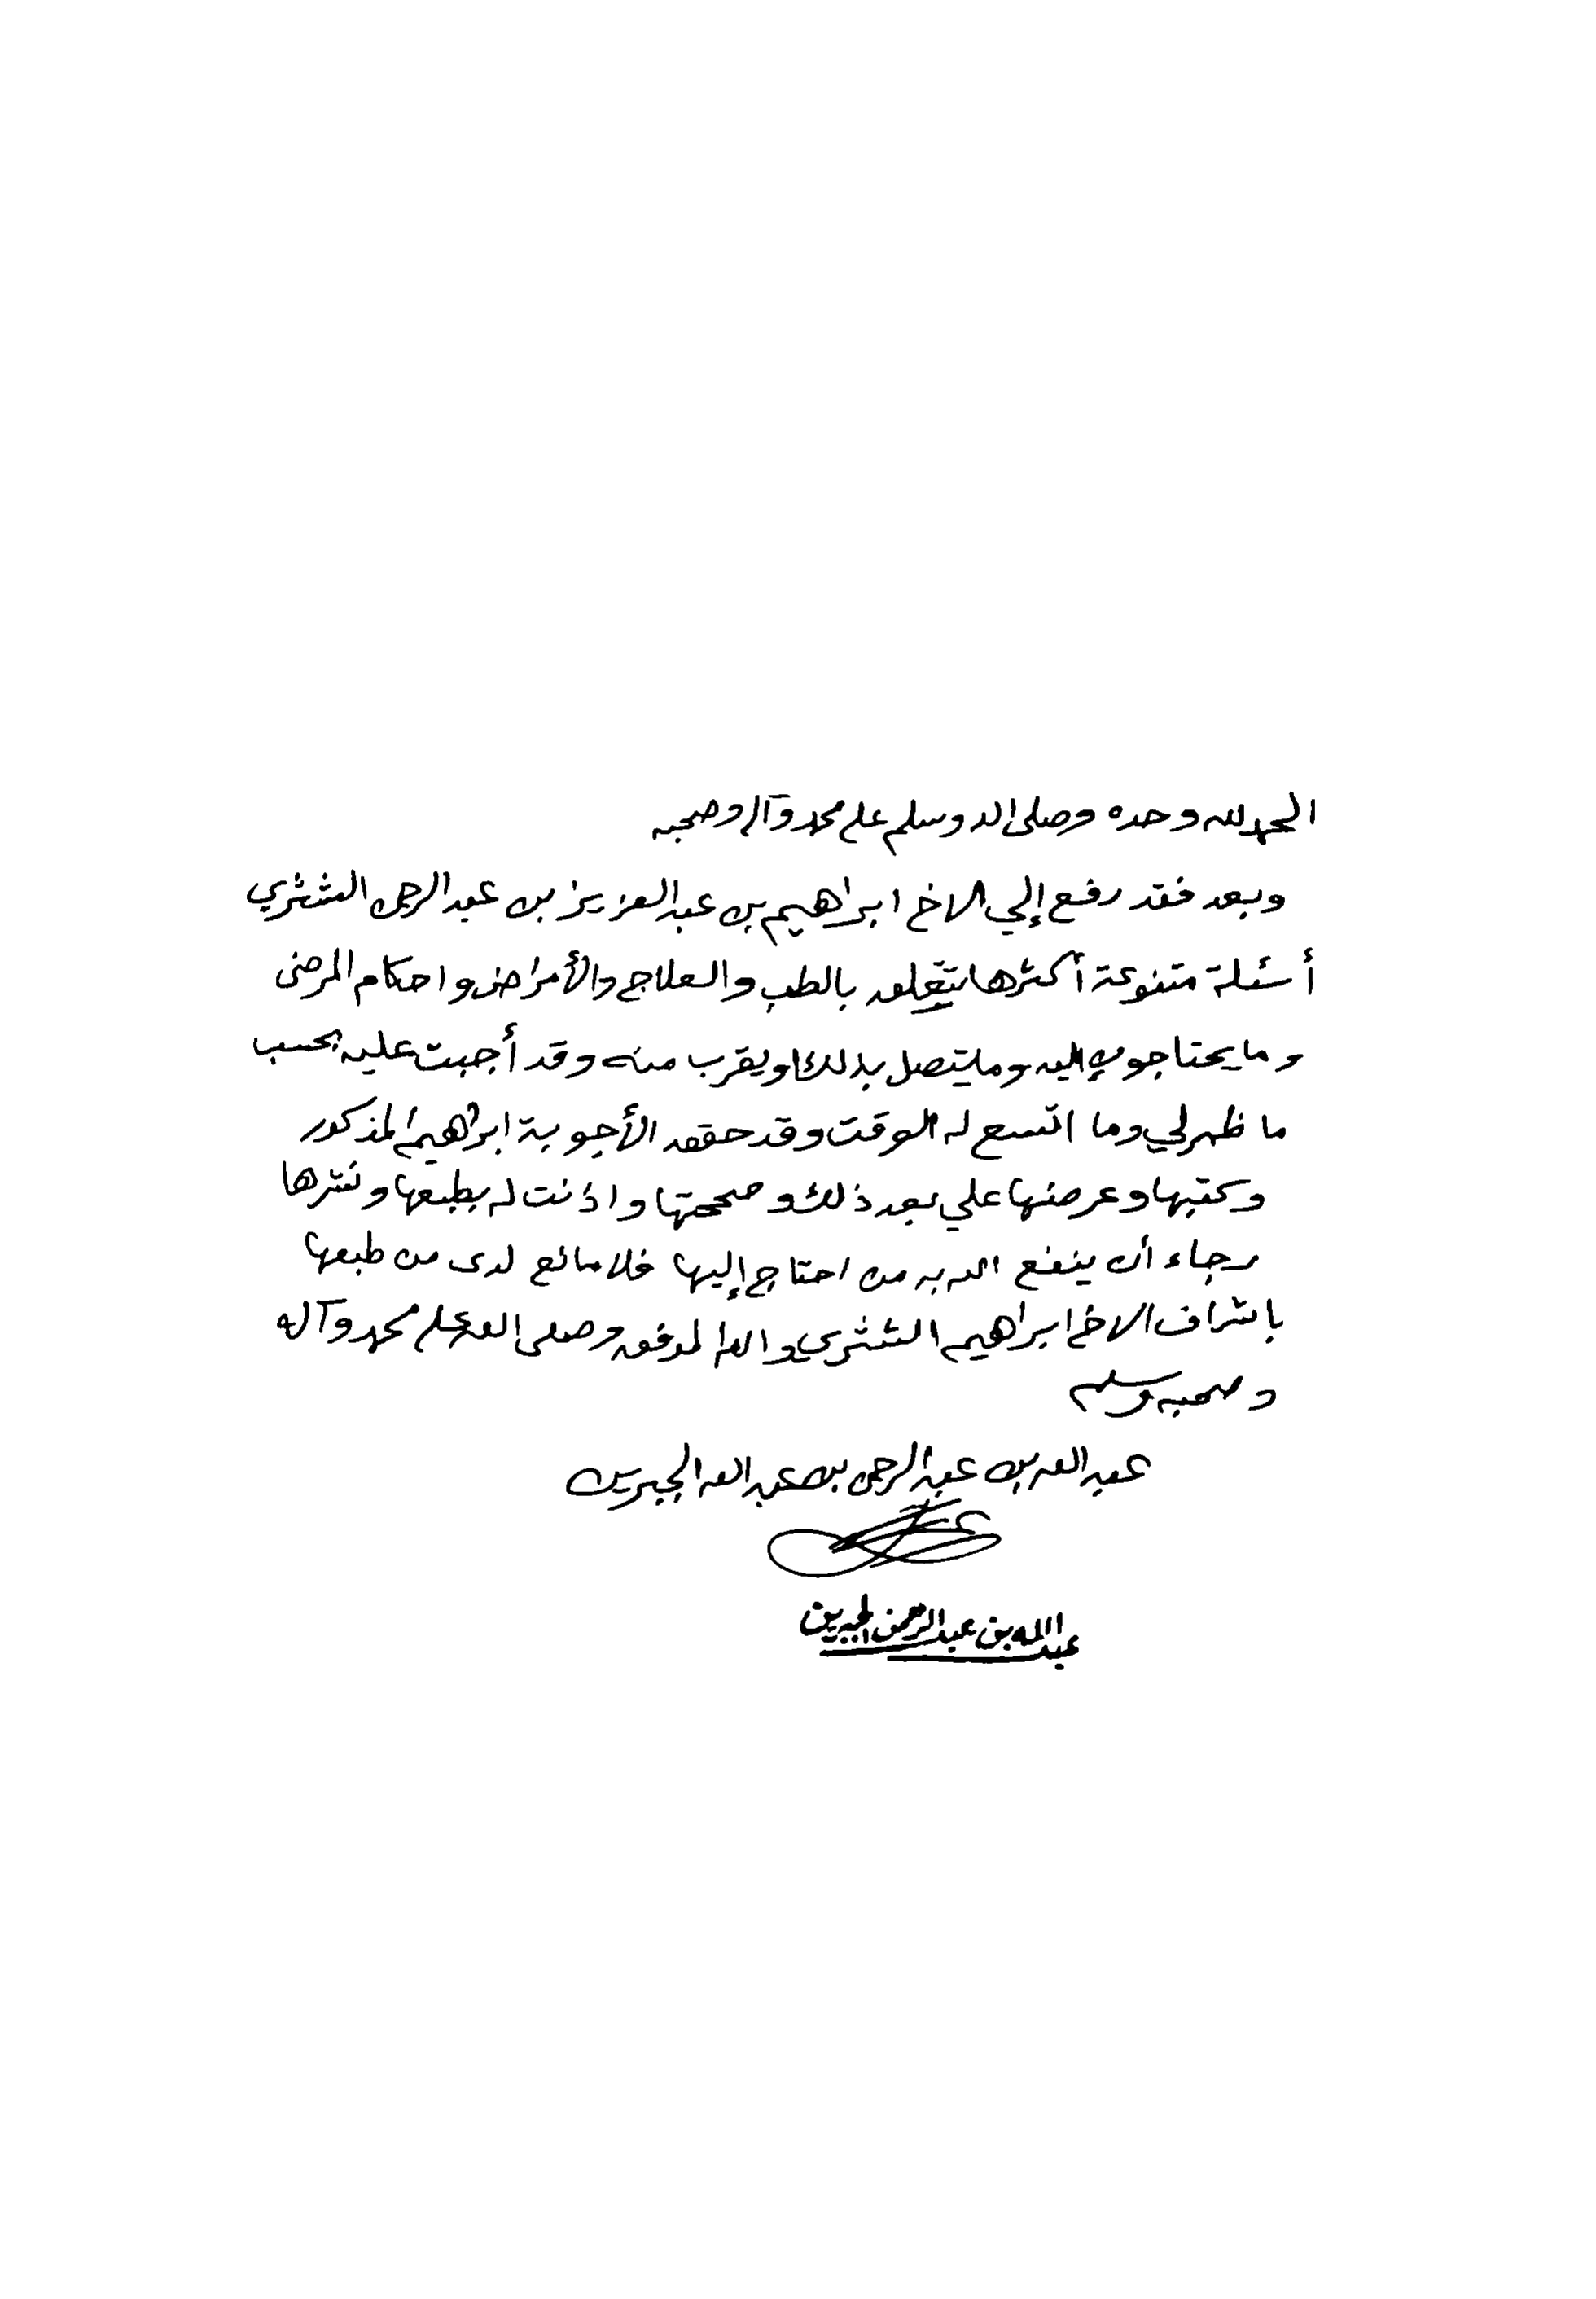 الحمد لله وحده وصلى الله وسلم على محمد وآله وصحبه
وبعد فقد رفع إلي الاخ ابراهيم بن عبد العزيز بن عبد الرحمن الشثري
أسئلة متنوعة أكثرها يتعلق بالطب والعلاج والأمراض واحكام المرضى
وما يحتاجون اليه وما يتصل بذلك او يقرب منه وقد أجبت عليه بحسب
ما ظهر لي وما اتسع له الوقت وقد حقق الأجوبة ابراهيم المذكور
وكتبها وعرضها علي بعد ذلك وصححتها واذنت له بطبعها ونشرها
رجاء أن ينفع الله به من احتاج إليها فلا مانع لدى من طبعها
باشراف الاخ ابراهيم الشثري والله الموفق وصلى الله على محمد وآله
وصحبه وسلم
عبد الله بن عبد الرحمن بن عبد الله الجبرين
عبدالله بن عبدالرحمن الجبرين